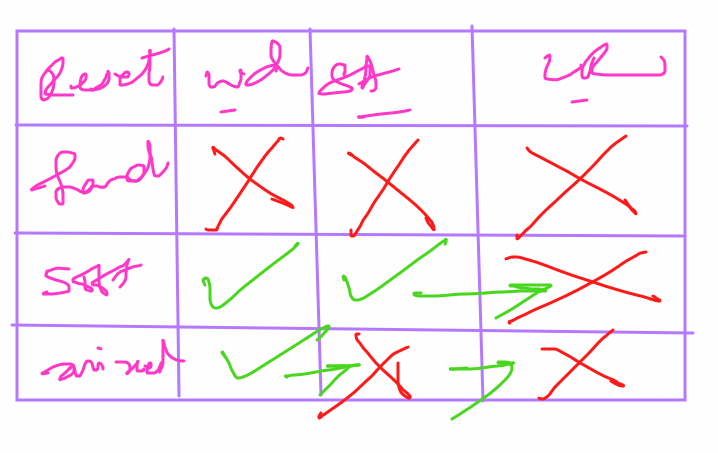 Reset wd st LR
hard
soft
mixed